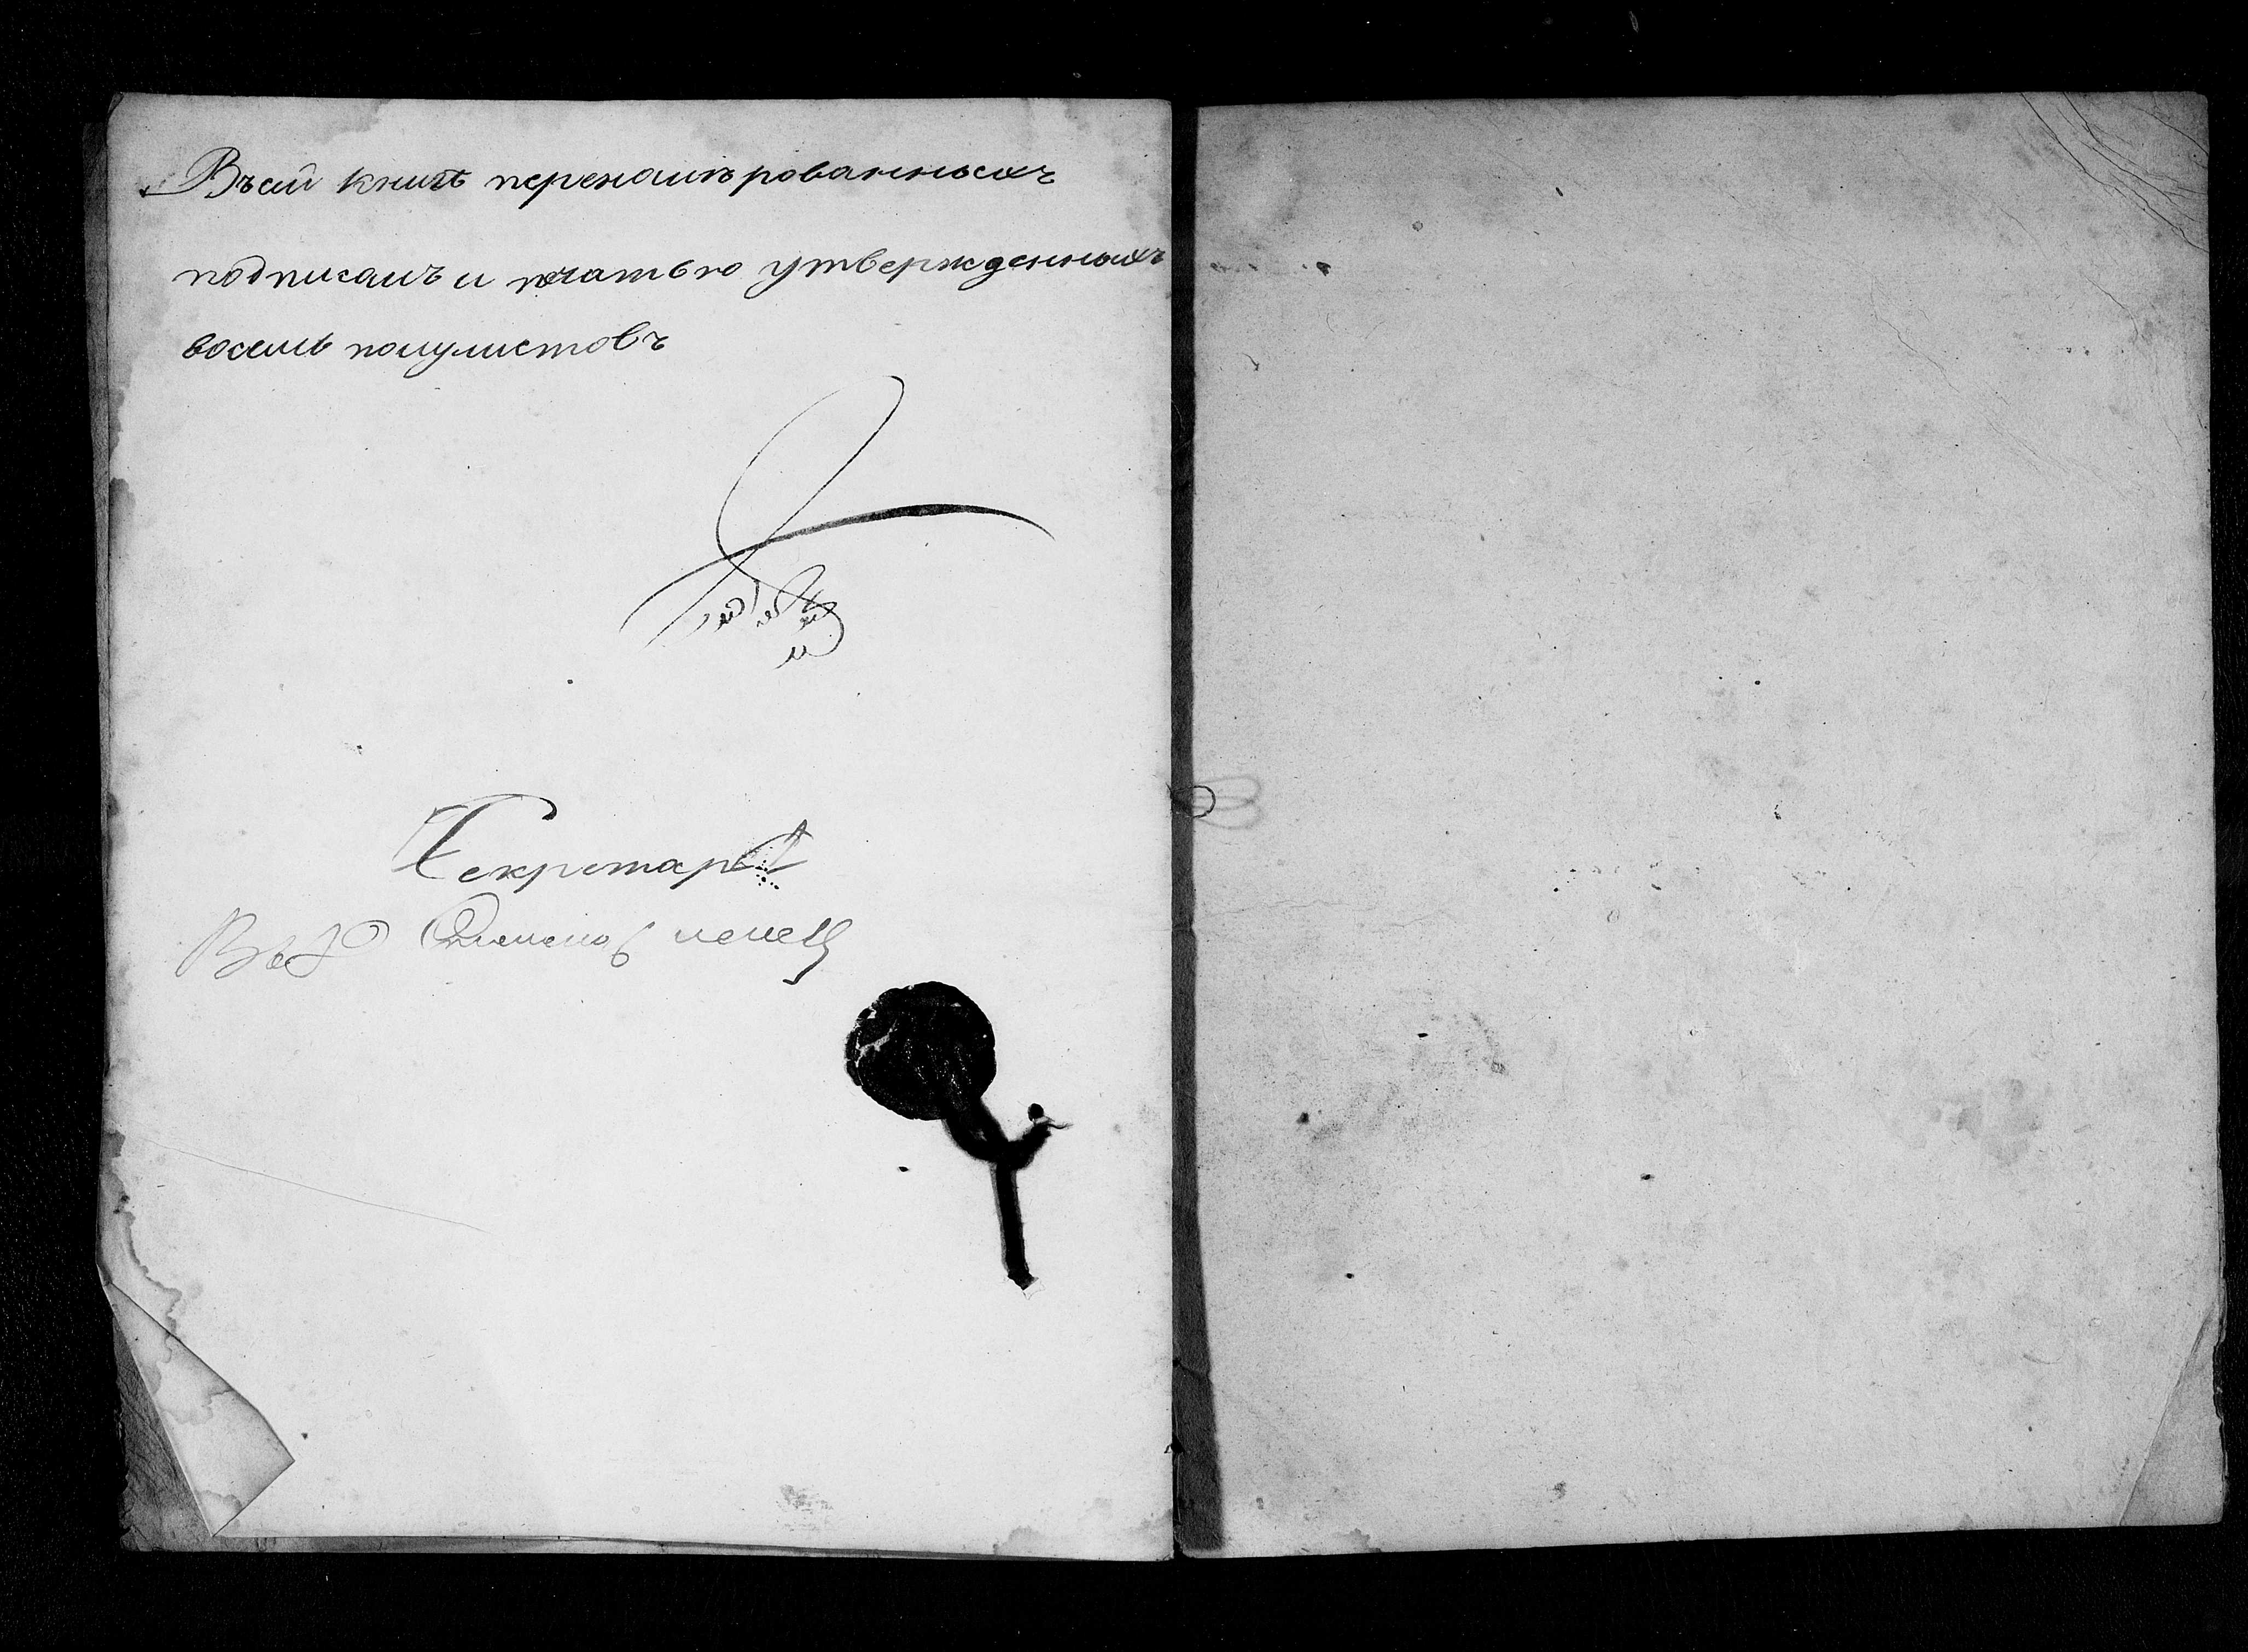 Въсей книгѣ переномѣрованныхъ
подписомъ и печатью утвержденныхъ
восемь полулистовъ
Секретарь